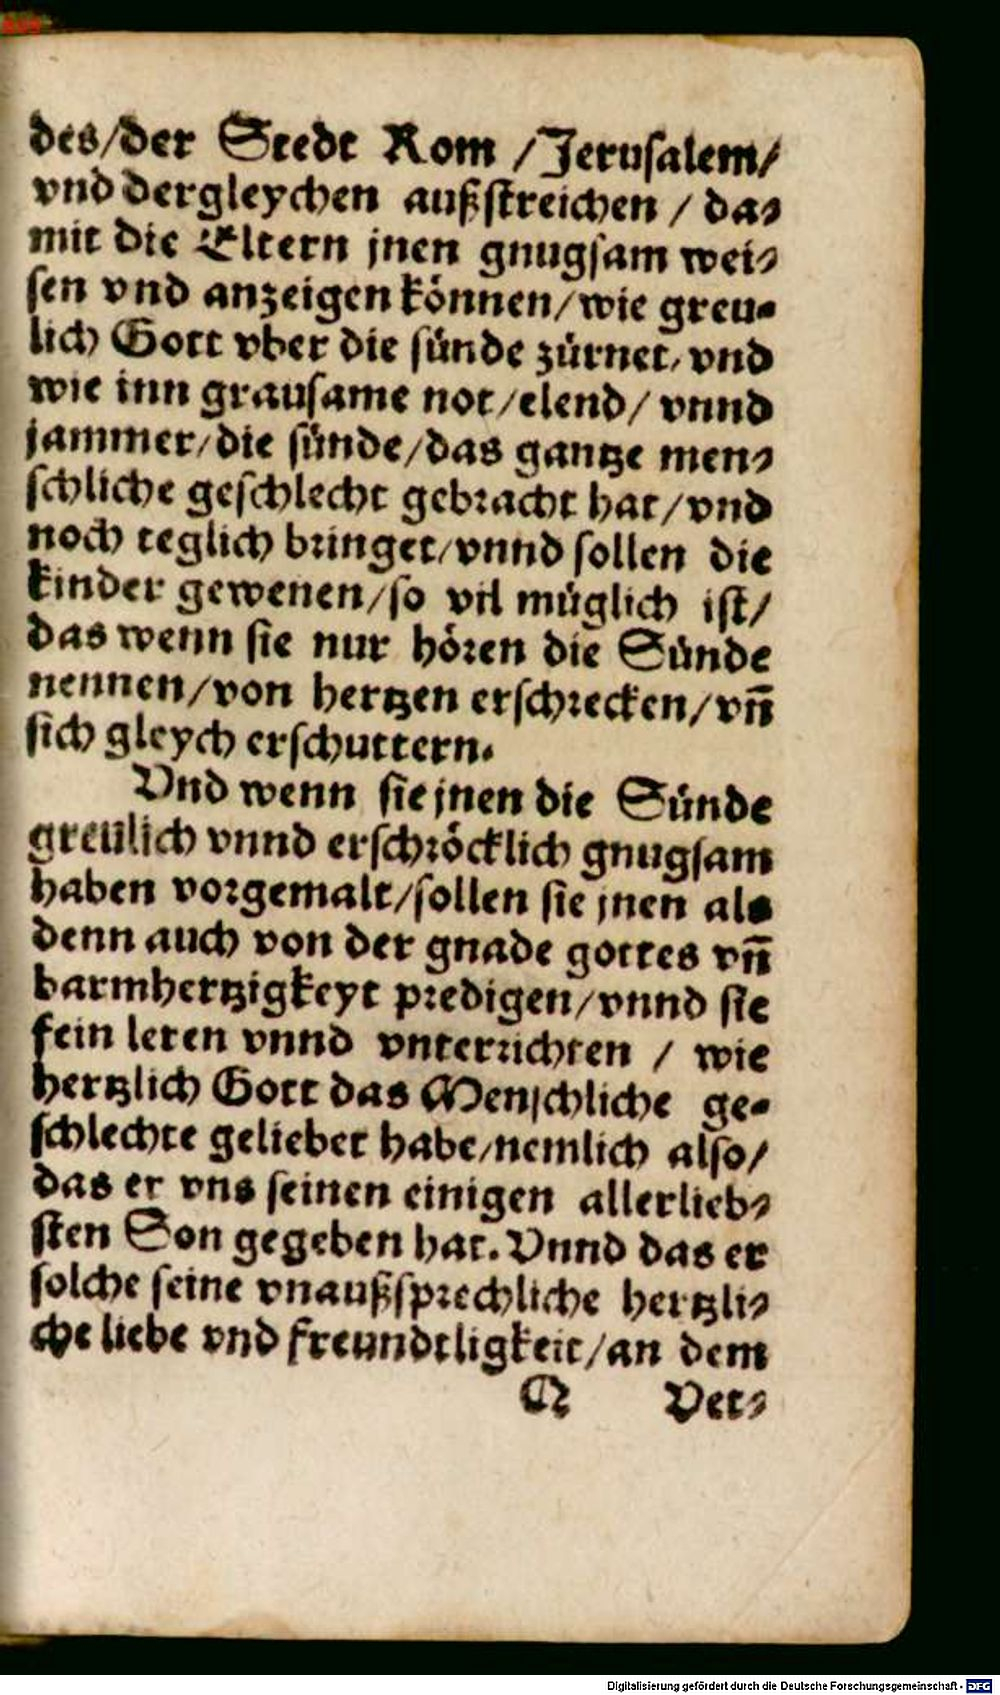 des/der Stedt Rom /Jerusalem/
vnd dergleychen außstreichen / da⸗
mit die Eltern jnen gnugsam wei⸗
sen vnd anzeigen können/wie greu⸗
lich Gott vber die sünde zürnet/vnd
wie inn grausame not/elend/ vnnd
jammer/die sünde/das gantze men⸗
schliche geschlecht gebracht hat/vnd
noch teglich bringet/vnnd sollen die
kinder gewenen/so vil müglich ist/
das wenn sie nur hören die Sünde
nennen/von hertzen erschrecken/vn̄
sich gleych erschuttern.
Vnd wenn sie jnen die Sünde
greulich vnnd erschröcklich gnugsam
haben vorgemalt/sollen sie jnen als
denn auch von der gnade gottes vn̄
barmhertzigkeyt predigen/vnnd sie
fein leren vnnd vnterrichten / wie
hertzlich Gott das Menschliche ge⸗
schlechte geliebet habe/nemlich also/
das er vns seinen einigen allerlieb⸗
sten Son gegeben hat. Vnnd das er
solche seine vnaußsprechliche hertzli⸗
che liebe vnd freundtligkeit/an dem
Q Ver⸗
Digitalisierung gefördert durch die Deutsche Forschungsgemeinschaft - DFG